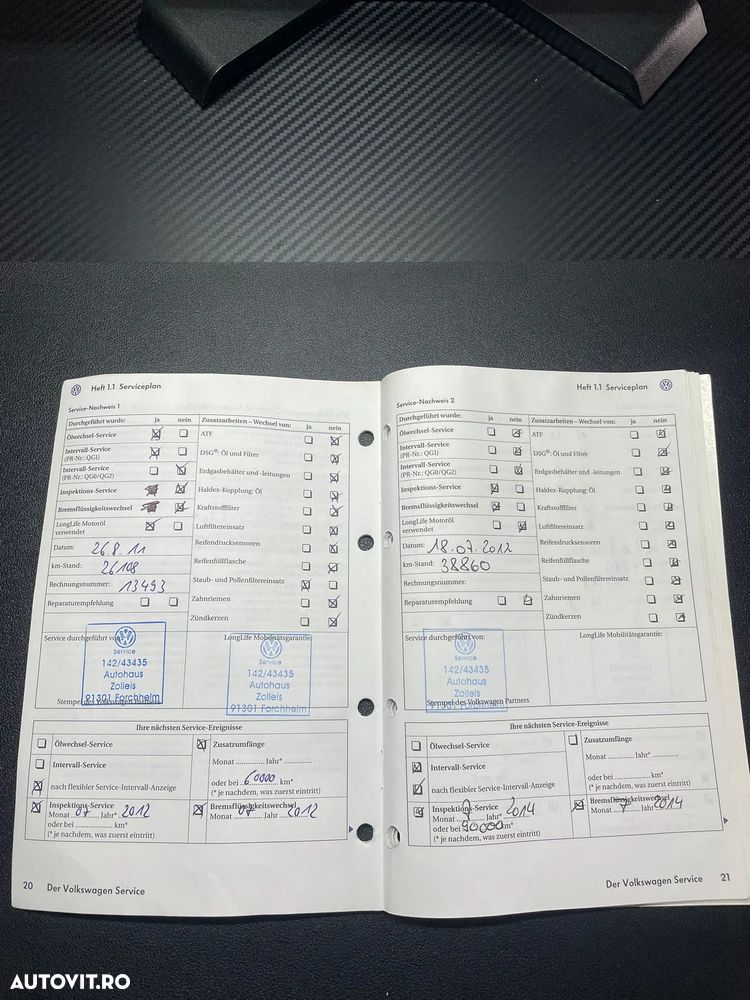 Heft 1.1 Serviceplan
Service-Nachweis 1
Durchgeführt wurde: ja nein
Zusatzarbeiten – Wechsel von: ja nein
Ölwechsel-Service
ATF
Intervall-Service
(PR-Nr.: QG1)
DSG®: Öl und Filter
Intervall-Service
(PR-Nr.: QG0/QG2)
Erdgasbehälter und -leitungen
Inspektions-Service
Haldex-Kupplung: Öl
Bremsflüssigkeitswechsel
Kraftstofffilter
LongLife Motoröl
verwendet
Luftfiltereinsatz
Datum: 26.8.11
Reifendichtmittel
km-Stand: 26108
Reifenfüllflasche
Rechnungsnummer: 13493
Staub- und Pollenfiltereinsatz
Reparaturempfehlung
Zahnriemen
Zündkerzen
Service durchgeführt von:
LongLife Mobilitätsgarantie:
Service
142/43435
Autohaus
Zolleis
91301 Forchheim
Service
142/43435
Autohaus
Zolleis
91301 Forchheim
Stempel des Volkswagen Partners
Ihre nächsten Service-Ereignisse
Ölwechsel-Service
Zusatzumfänge
Intervall-Service
Monat ............. Jahr* ..............
nach flexibler Service-Intervall-Anzeige
oder bei 60000 km*
(* je nachdem, was zuerst eintritt)
Inspektions-Service
Monat 07 Jahr* 2012
oder bei .................. km*
(* je nachdem, was zuerst eintritt)
Bremsflüssigkeitswechsel
Monat 07 Jahr 2012
20 Der Volkswagen Service
Heft 1.1 Serviceplan
Service-Nachweis 2
Durchgeführt wurde: ja nein
Zusatzarbeiten – Wechsel von: ja nein
Ölwechsel-Service
ATF
Intervall-Service
(PR-Nr.: QG1)
DSG®: Öl und Filter
Intervall-Service
(PR-Nr.: QG0/QG2)
Erdgasbehälter und -leitungen
Inspektions-Service
Haldex-Kupplung: Öl
Bremsflüssigkeitswechsel
Kraftstofffilter
LongLife Motoröl
verwendet
Luftfiltereinsatz
Datum: 18.07.2012
Reifendrucksensoren
km-Stand: 38860
Reifenfüllflasche
Rechnungsnummer:
Staub- und Pollenfiltereinsatz
Reparaturempfehlung
Zahnriemen
Zündkerzen
Service durchgeführt von:
LongLife Mobilitätsgarantie:
Service
142/43435
Autohaus
Zolleis
91301 Forchheim
Stempel des Volkswagen Partners
Ihre nächsten Service-Ereignisse
Ölwechsel-Service
Zusatzumfänge
Intervall-Service
Monat ............. Jahr* ..............
nach flexibler Service-Intervall-Anzeige
oder bei .................. km*
(* je nachdem, was zuerst eintritt)
Inspektions-Service
Monat 7 Jahr* 2014
oder bei 90000 km*
(* je nachdem, was zuerst eintritt)
Bremsflüssigkeitswechsel
Monat 7 Jahr 2014
Der Volkswagen Service 21
AUTOVIT.RO